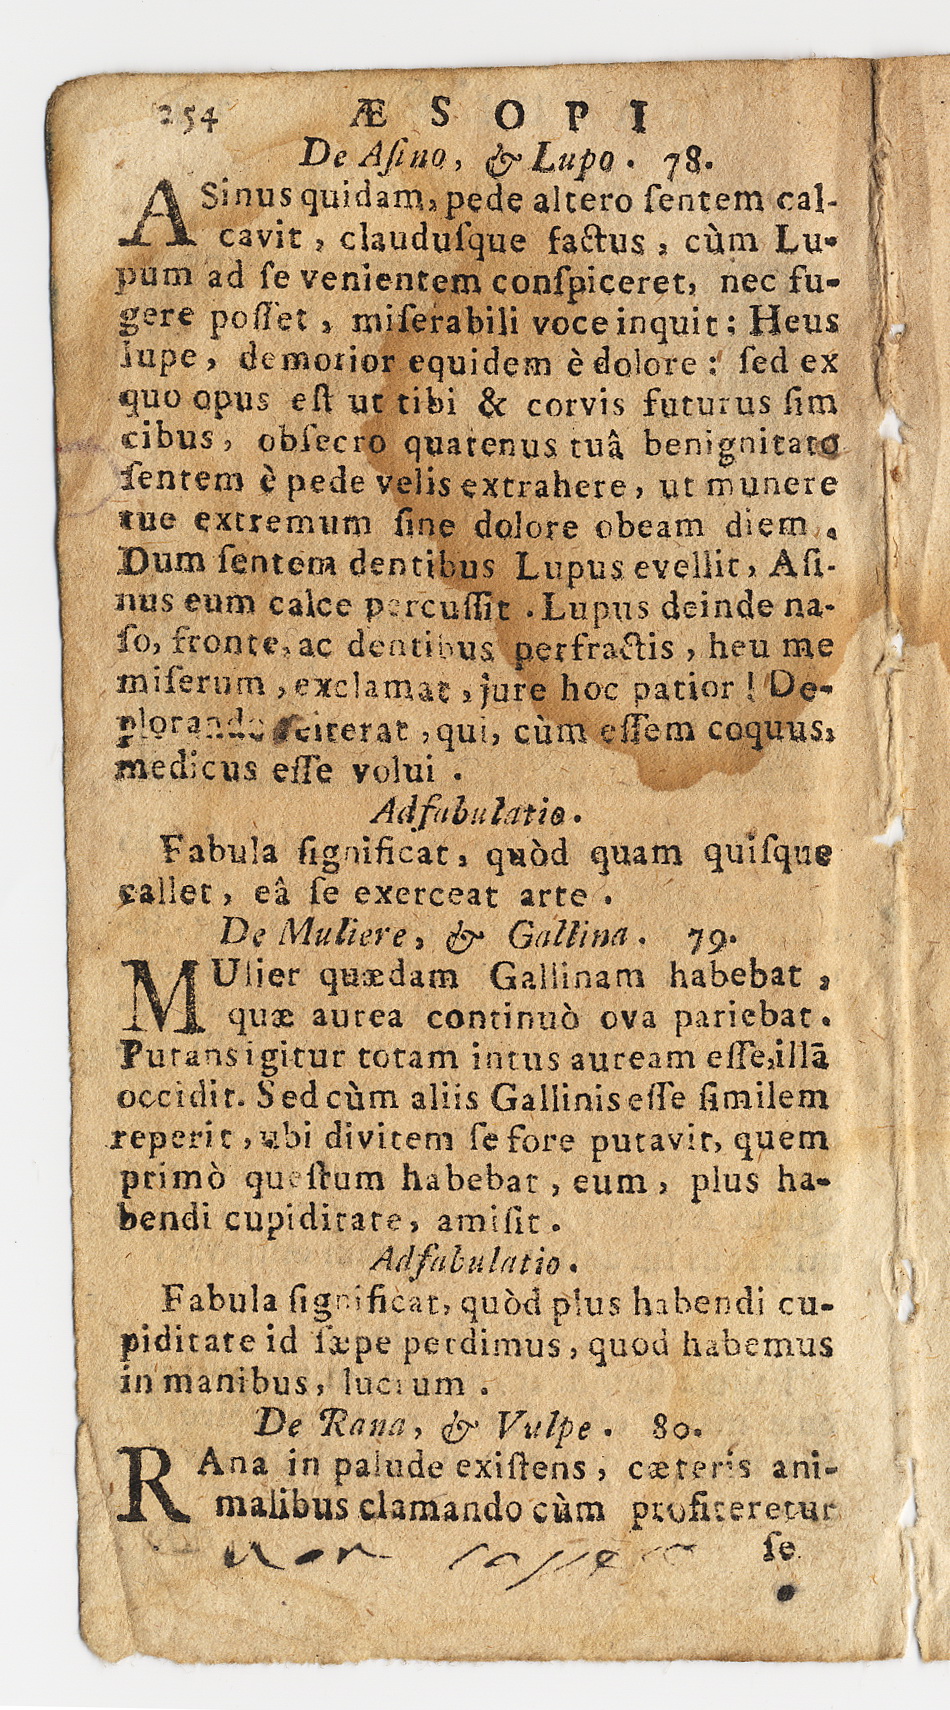 254 ÆSOPI
De Aſino, & Lupo. 78.
ASinus quidam, pede altero ſentem cal-
cavit, clauduſque factus, cùm Lu-
pum ad ſe venientem conſpiceret, nec fu-
gere poſſet, miſerabili voce inquit: Heus
lupe, demorior equidem è dolore: ſed ex
quo opus eſt ut tibi & corvis futurus ſim
cibus, obſecro quatenus tuâ benignitate
ſentem è pede velis extrahere, ut munere
tuo extremum ſine dolore obeam diem.
Dum ſentem dentibus Lupus evellit, Aſi-
nus eum calce percuſſit. Lupus deinde na-
ſo, fronte, ac dentibus perfractis, heu me
miſerum, exclamat, jure hoc patior! De-
plorando reiterat, qui, cùm eſſem coquus,
medicus eſſe volui.
Adfabulatio.
Fabula ſignificat, quòd quam quiſque
callet, eâ ſe exerceat arte.
De Muliere, & Gallina. 79.
MUlier quædam Gallinam habebat,
quæ aurea continuò ova pariebat.
Putans igitur totam intus auream eſſe, illā
occidit. Sed cùm aliis Gallinis eſſe ſimilem
reperit, ubi divitem ſe fore putavit, quem
primò queſtum habebat, eum, plus ha-
bendi cupiditate, amiſit.
Adfabulatio.
Fabula ſignificat, quòd plus habendi cu-
piditate id ſæpe perdimus, quod habemus
in manibus, lucrum.
De Rana, & Vulpe. 80.
RAna in palude exiſtens, cæteris ani-
malibus clamando cùm profiteretur
ſe